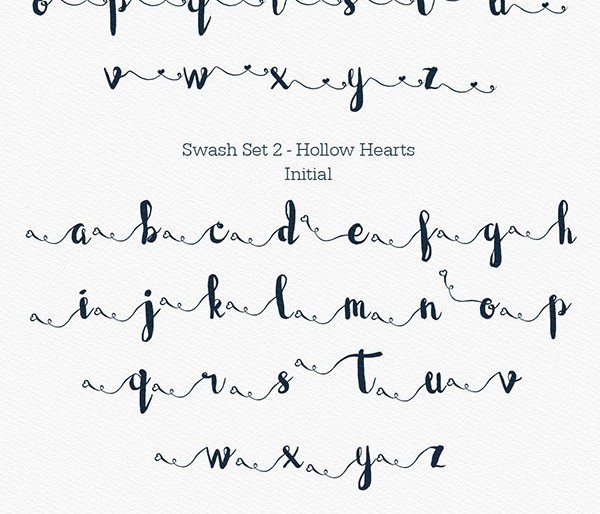 o p q r s t u
v w x y z
Swash Set 2 - Hollow Hearts
Initial
a b c d e f g h
i j k l m n o p
q r s t u v
w x y z